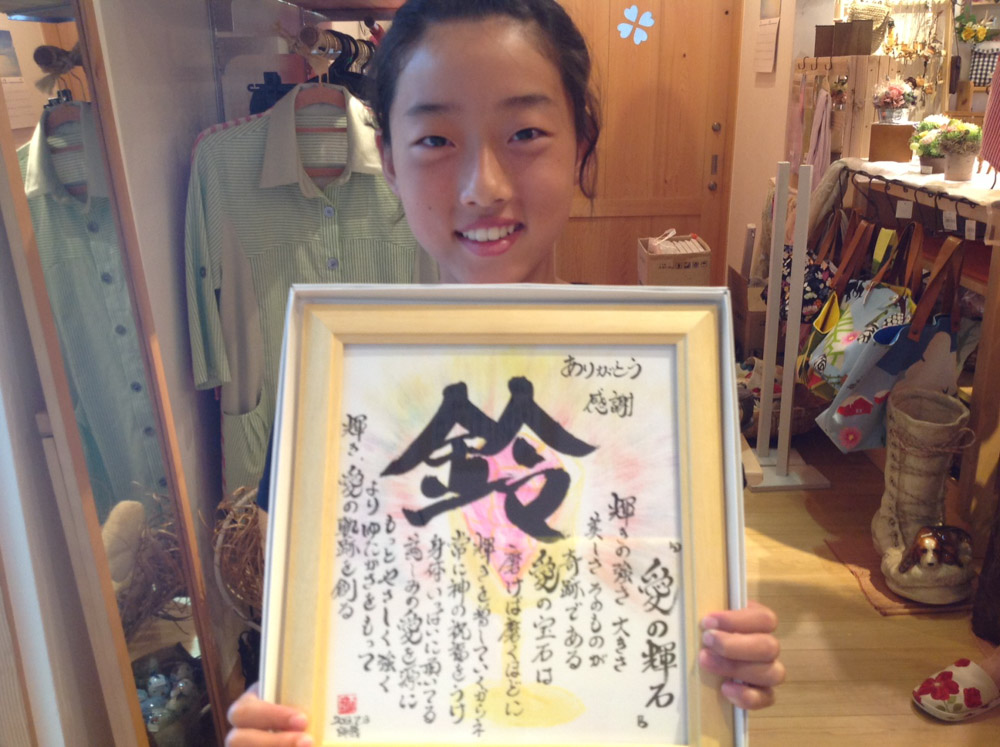 ありがとう
感謝
鈴
『愛の輝石』
輝きの強さ 大きさ
美しさそのものが
奇跡である
愛の宝石は
磨けば磨くほどに
輝きを増していく
常に神の祝福をうけ
身体いっぱいに頂いてる
慈しみの愛を源に
もっとやさしく強く
よりゆたかさをもって
輝き、愛の軌跡を創る